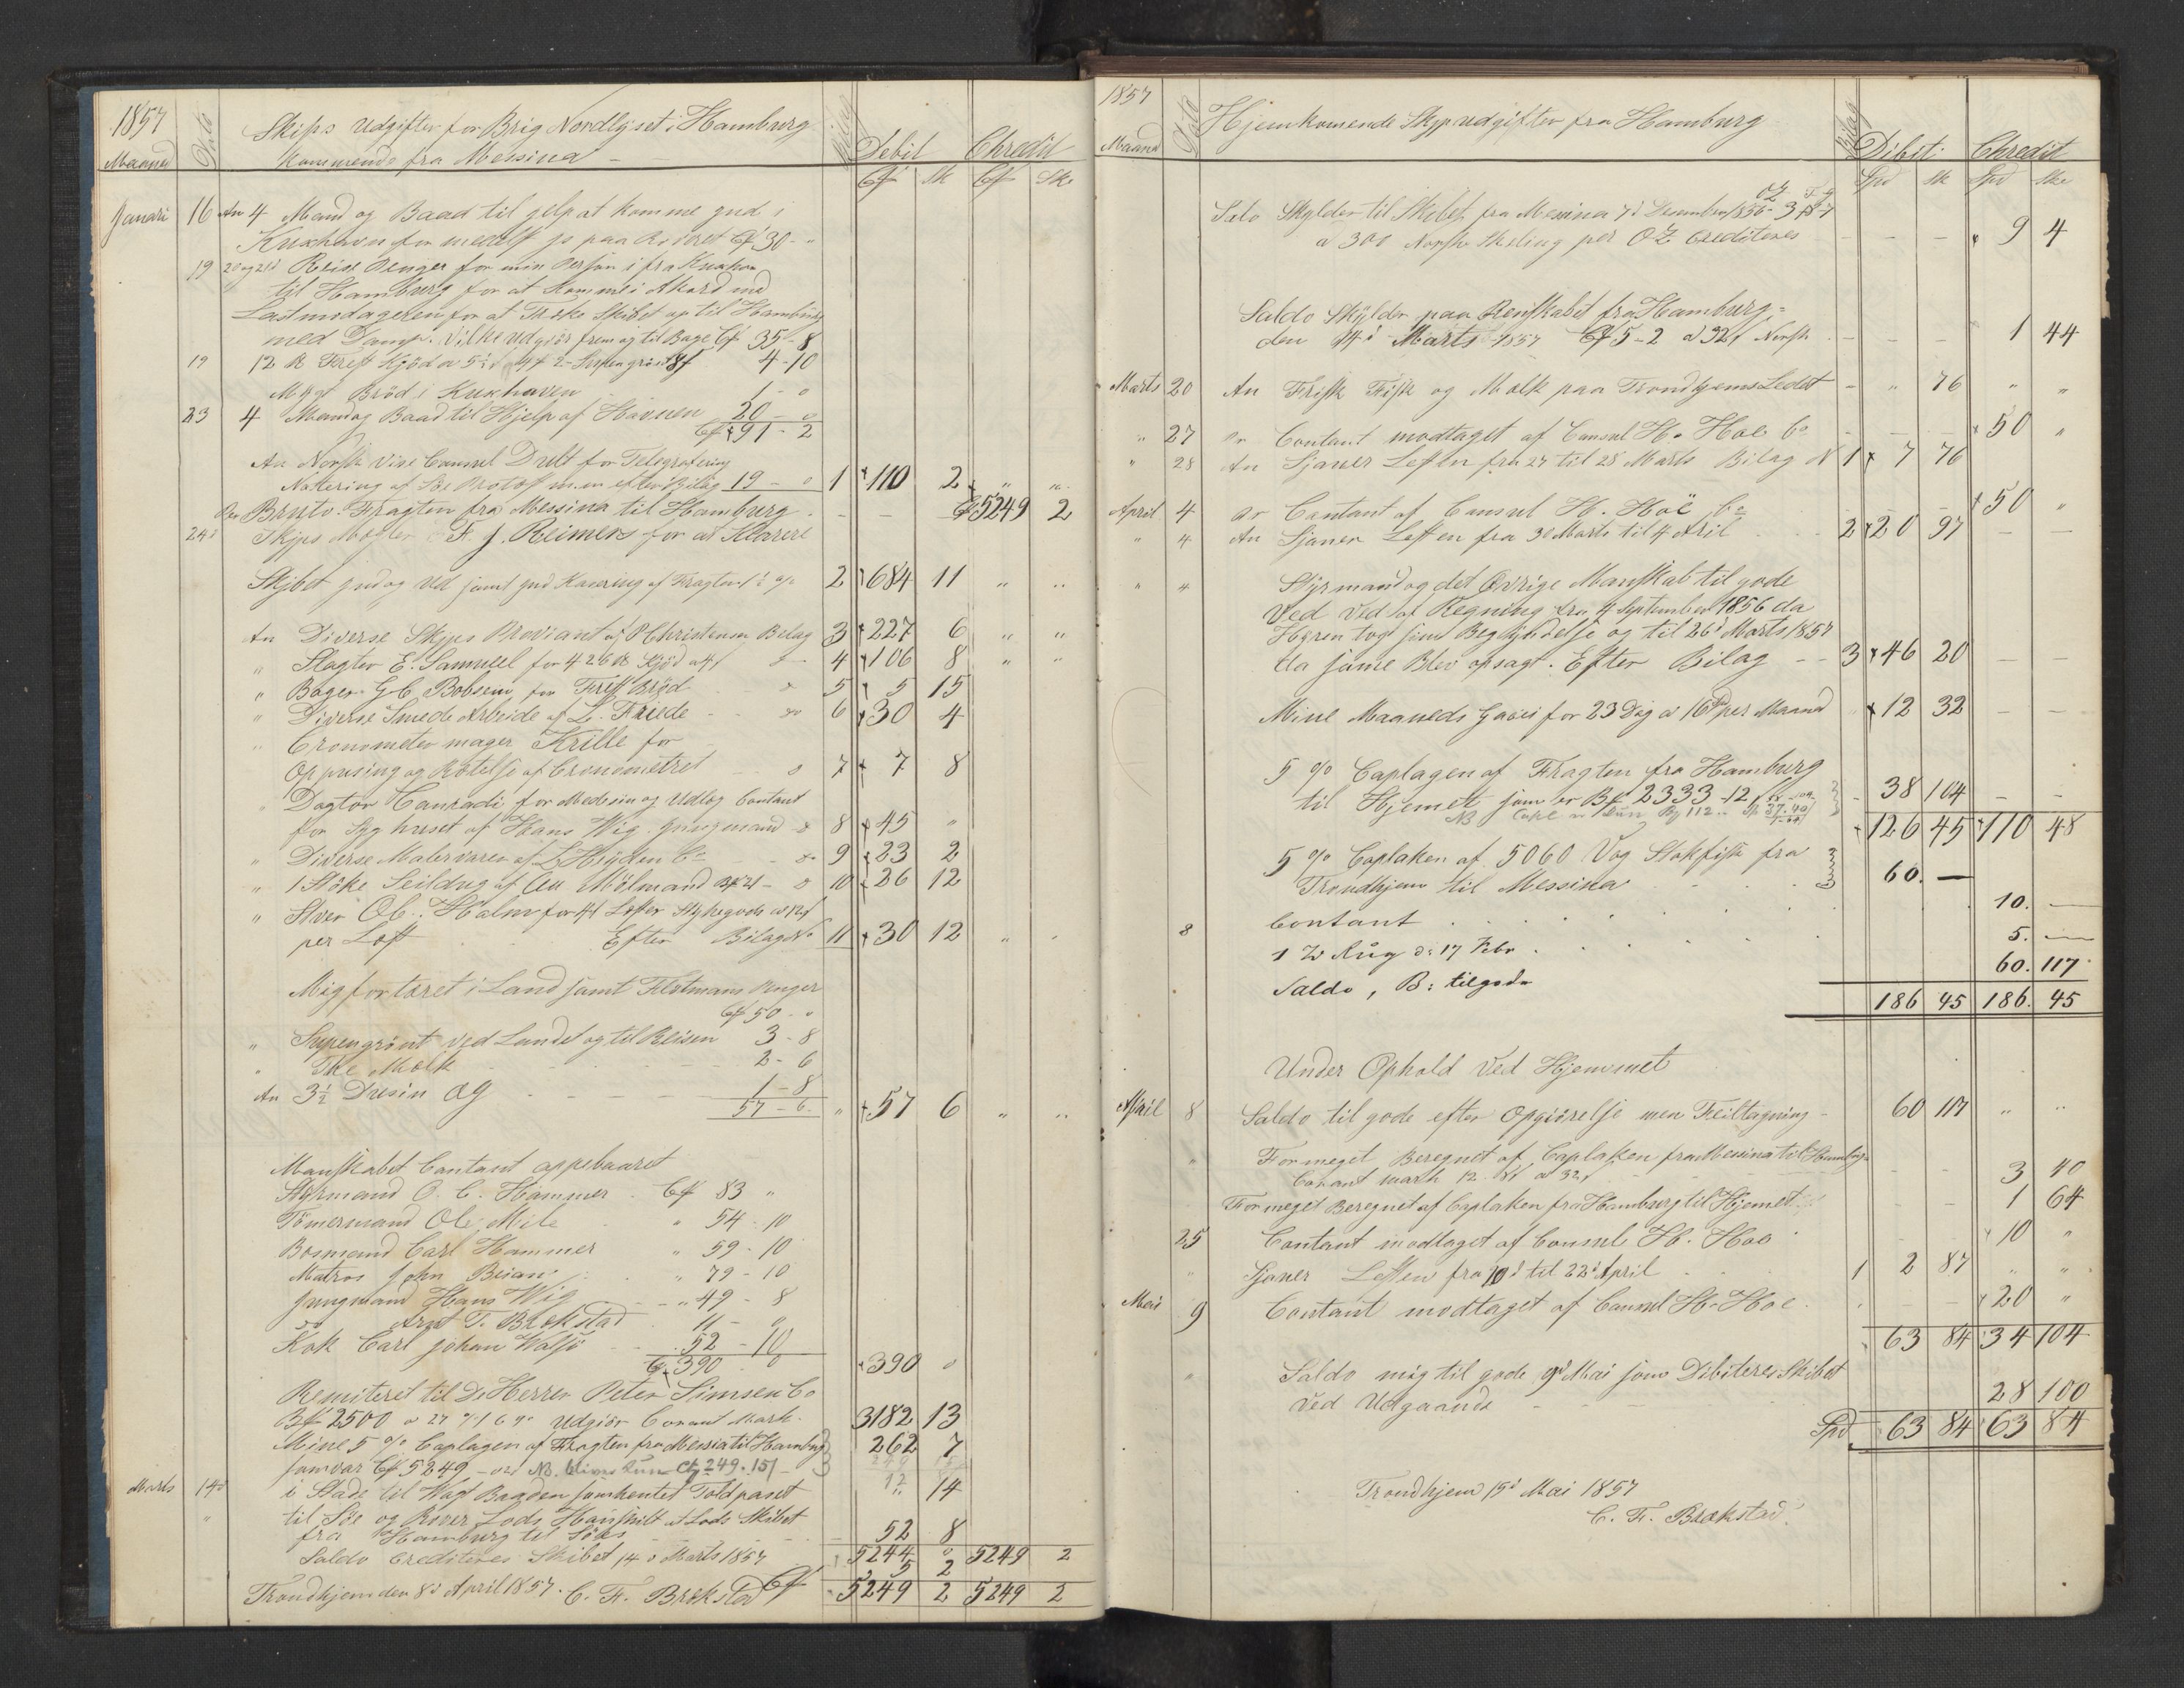 1857
Maaned Dato
Skips Udgifter for Brig Nordlyset i Hamburg
kommende fra Messina
Bilag Debit Chredit
C# Sk C# Ske
Januari 16 An 4 Mand og Baad til Help at komme ind i
Kuxhaven for medelst is paa Reviret C# 30 - "
19 20 og 21d Reise Penger for min Person i fra Kuxhav
til Hamburg for at komme i Akord med
for at Træke Skibet op til Hamburg
med Damp. Vilke udgiør frem og til Bage C# 35 - 8
19 12 tt Frisk Kjöd a 5½ 4-10
Mygt Bröd i Kuxhaven 1 - o
23 4 Mand og Baad til Hjelp af Havnen 20 - o
C# 91 - 2
An Norsk Vise Consul Dult for Telegrafering
Notering af Søe Protest m.m. efter Bilag 19 - o 1 110 2 " "
Per Bruto Fragten fra Messina til Hamburg - - C# 5249 2
24d Skips Megler F. J. Reimers for at Klarere
Skibet ind og ud samt Ind Kasering af Fragten 2 684 11 " "
An Diverse Skips Proviant af P Christensen Bilag 3 227 6 " "
" Slagter E. Samuel for 426 tt Kjöd a 4 do 4 106 8 " "
" Bager G C Bobsien for Frisk Bröd do 5 5 15
" Diverse Smede Arbeide af L. Friede do 6 30 4
" Cronometer mager Krille for
Oppusing og Rotelse af Cronometret do 7 7 8
" Dogtor Conradi for Medesin og Udlog Contant
for Syghuset af Hans Wig. Jungmand do 8 45 "
" Diverse Malervarer af L Heyden Co do 9 23 2
" 1 Stöke Seildug af Mölmand do 10 26 12
" Ol. Holm for 41 Lester Stykegods a 12
per Lest Efter Bilag No 11 30 12 " "
Mig fortæret i Land samt Penger
C# 50 - o
" Suppengrönt ved Landet og til Reisen 3 - 8
" Melk 2 - 6
An 3½ Dusin Æg 1 - 8
57 - 6 " 57 6 " "
Manskabet Contant oppebaaret
Styrmand O. C. Hammer C# 83 "
Tömermand Ole Mile " 54 - 10
Bosmand Carl Hammer " 59 - 10
Matros John Beian " 79 - 10
Jungmand Hans Wig " 49 - 8
do Arnt T. Brekstad 11 - o
Kok Carl Johan Walsö 52 - 10
C# 390 o 390 o
Remiteret til De Herrer Peter Simsen Co
B# 2500 a 27 Udgiör Corant Mark 3182 13
Mine 5 % Caplagen af Fragten fra Messina til Hamburg 262 7
som var C# 5249 - NB. bliver kun C# 249.15
Marts 14d i Stade til Vagt Baaden som hentet Told paset " 14
" til Söe og River Lods at Lods Skibet
fra Hamburg til Söes 52 8
Saldo Crediteres Skibet 14d Marts 1857 5244 o 5249 2
5 2
Trondhjem den 8d April 1857. C. F. Brekstad C# 5249 2 5249 2
1857
Maand Dato
Hjemkomende Skips udgifter fra Hamburg
Bilag Dibit Chredit
Spd Sk Spd Ske
Salo Skylder til Skibet fra Messina 7d Desember 1856
a 300 Norske Skeling per OZ Crediteres - - - 9 4
Saldo Skylder paa Renskabet fra Hamburg
den 14d Marts 1857 C# 5-2 a 32 Norsk - - - 1 44
Marts 20 An Frisk Fisk og Melk paa Trondhjems Ledet - " 76 " "
" 27 Per Contant modtaget af Consul H. Hoe Co - - 50 "
" 28 An Sjauer Lesten fra 27 til 28 Marts Bilag N 1 7 76
April 4 Per Contant af Consul H. Höe Co 50 "
" 4 An Sjauer Lesten fra 30 Marts til 4 April 2 20 97 - -
" 4 Styrmand og det Övrige Manskab til gode
Ved Ved af Regning fra 4 September 1856 da
Hyren tog sin Begyndelse og til 26d Marts 1857
da same Blev opsagt. Efter Bilag - - 3 46 20 - -
Mine Maaneds Gasie for 23 Dag a 16 Spd per Maand " 12 32 - -
5 % Caplagen af Fragten fra Hamburg
til Hjemet som er B# 2333-12 - 38 104 - -
126 45 110 48
5 % Caplaken af 5060 Vog Stokfisk fra
Trondhjem til Messina 60. —
8 Contant 10. —
1 Rug d: 17 Febr. 5. —
Saldo, B: tilgode 60. 117
186 45 186. 45
Under Ophold Ved Hjemmet
April 8 Saldo til gode efter Opgiörelse men Feiltagning 60 117 " "
" For meget Beregnet af Caplaken fra Messina til Hamburg
Corant mark 12 a 32 - - 3 40
For meget Beregnet af Caplaken fra Hamburg til Hjemet - - 1 64
25 Contant modtaget af Consul H. Hoe - 10 "
" Sjauer Lesten fra 10d til 22d April 1 2 87 " "
Mai 9 Contant modtaget af Consul H. Hoe - 20 "
63 84 34 104
" Saldo mig til gode 9d Mai som Dibiteres Skibet
Ved Udgaaende 28 100
Spd 63 84 63 84
Trondhjem 15d Mai 1857
C. F. Brekstad